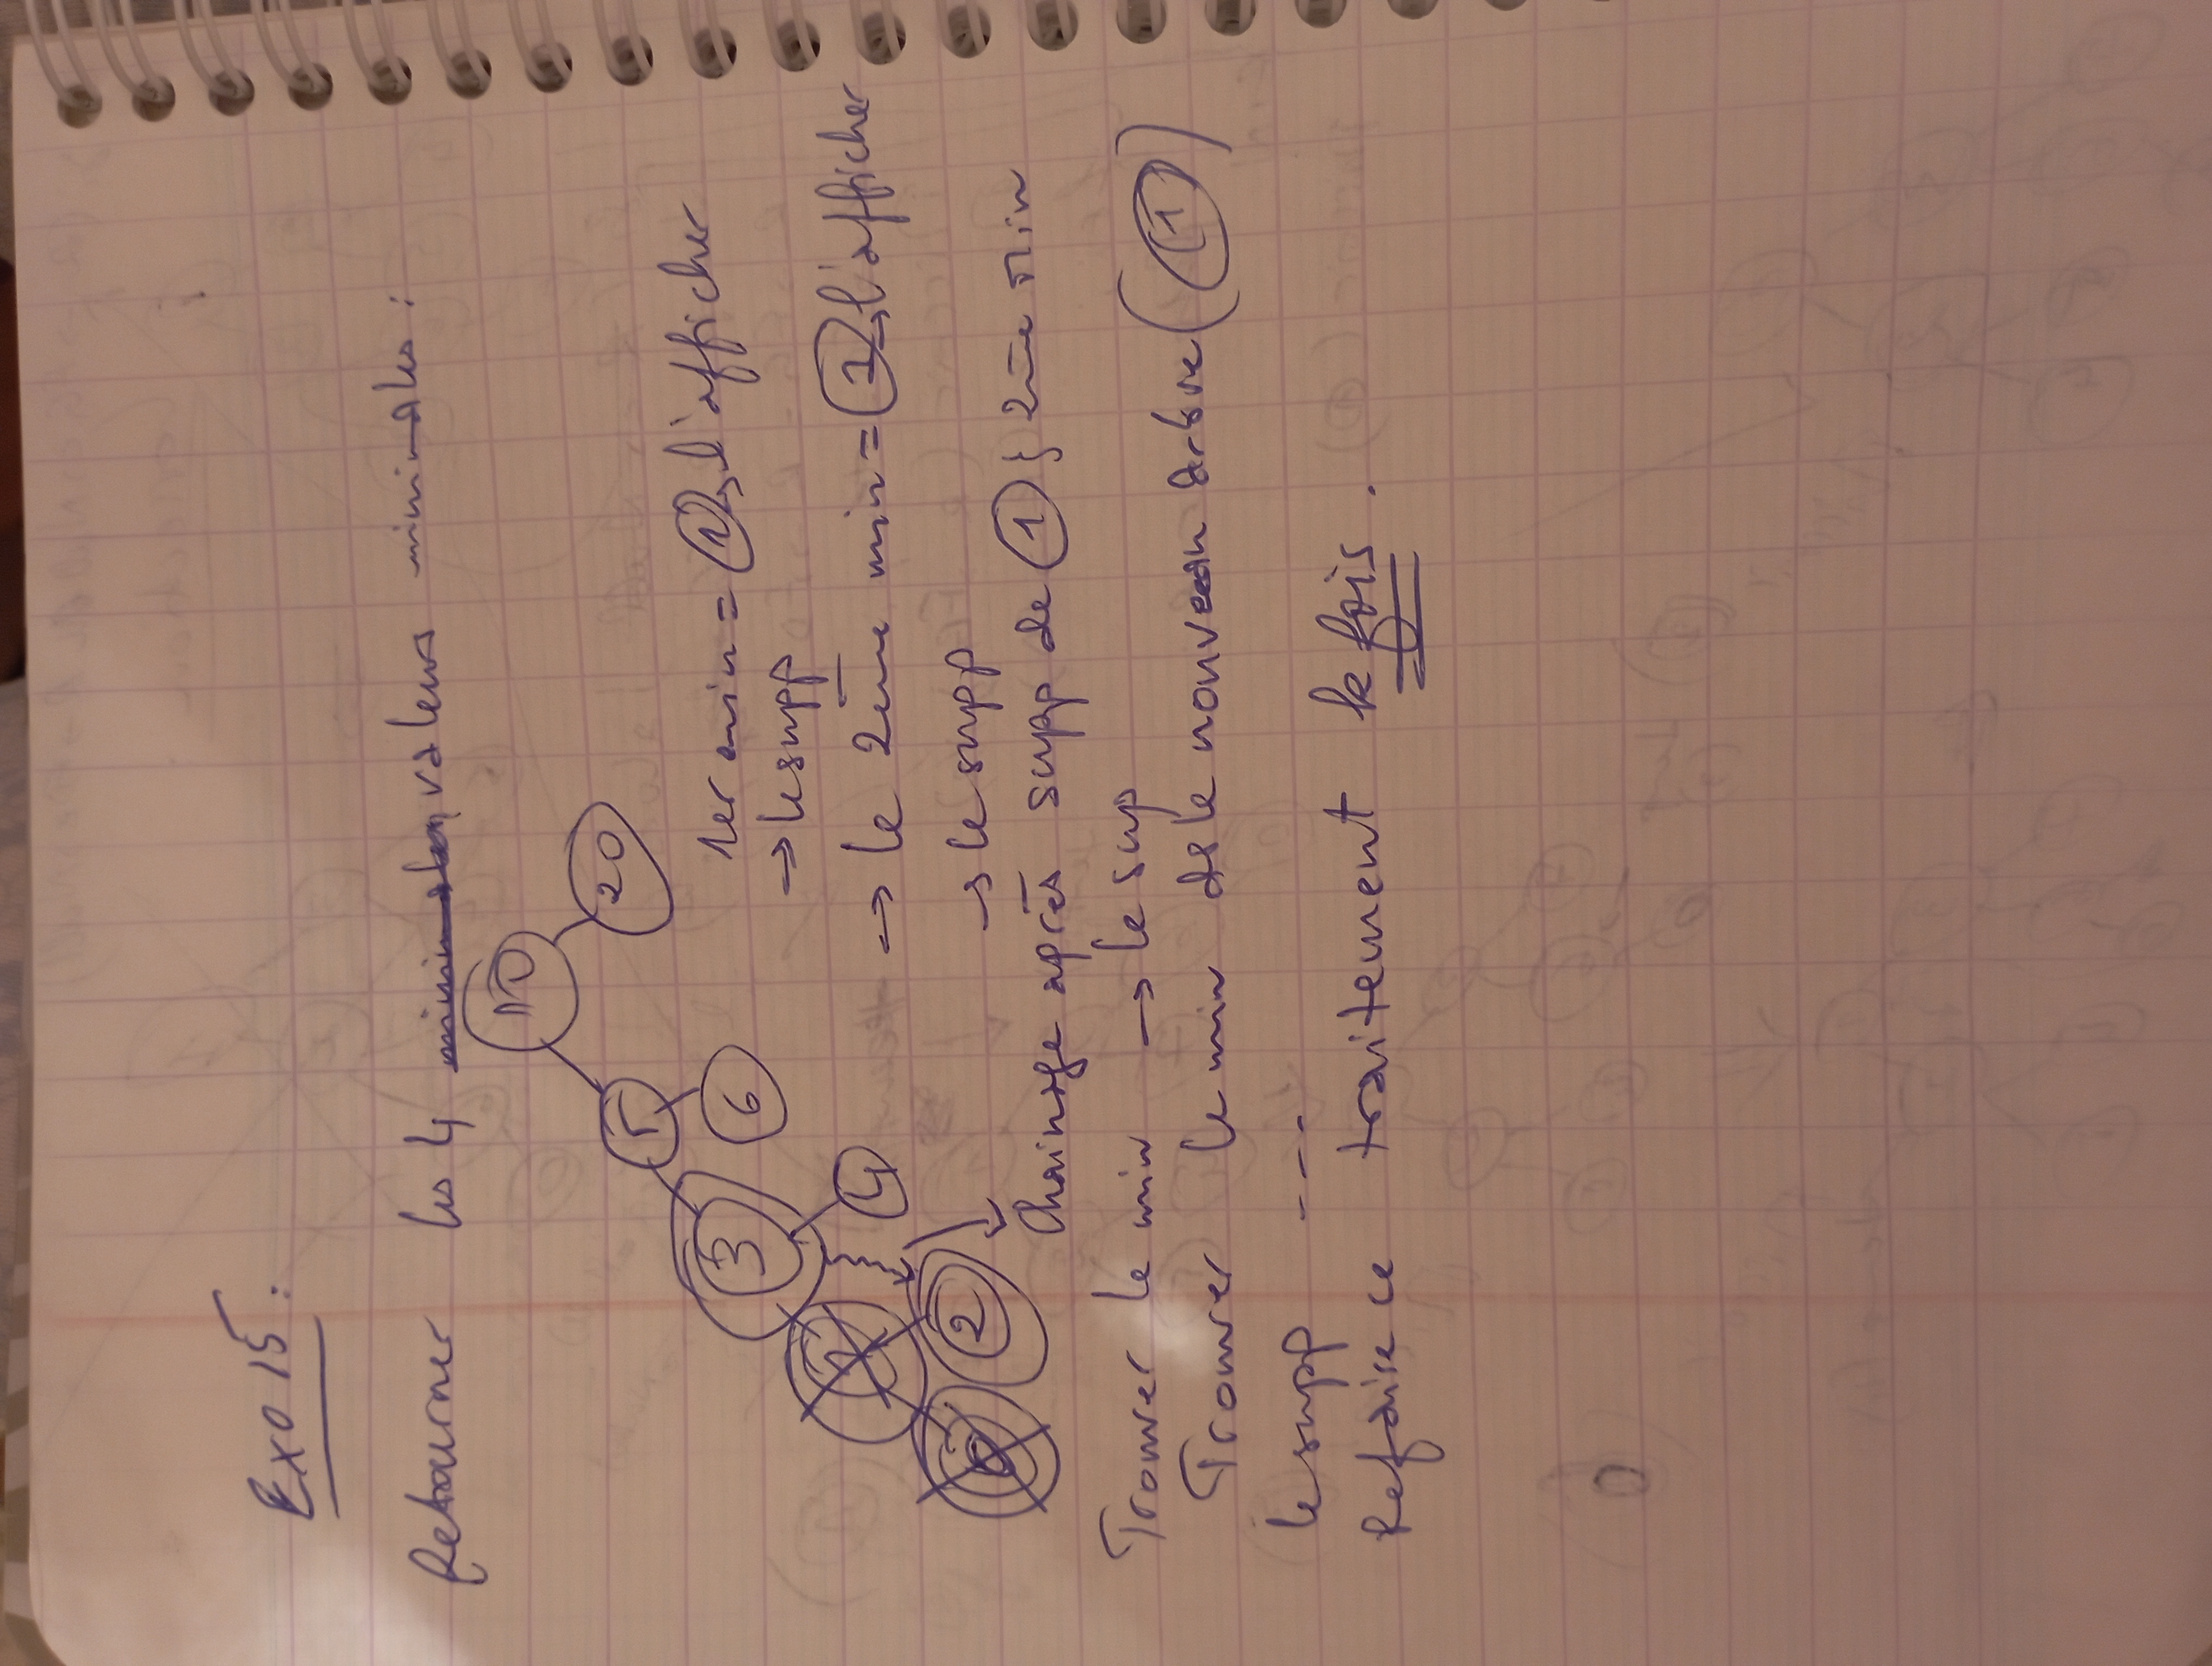 Exo 15 :
Retourner les 4 minimales valeurs minimales :
10
5
20
3
6
1er min = 1 → l'afficher
→ le supp
1
4
→ le 2ème min = 1 → l'afficher
0
2
→ le supp
Chainage après supp de 1 } 2ème Min
Trouver le min → le sup
Trouver le min ds le nouveau arbre ( 1 )
le supp ----
Refaire ce traitement k fois .